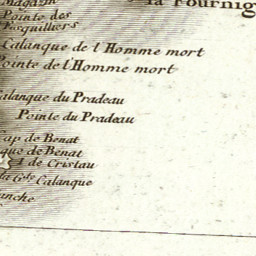 Magasin
la Fournig
Pointe des
Pesquillers
Calanque de l'Homme mort
Pointe de l'Homme mort
alanque du Pradeau
Pointe du Pradeau
Cap de Benat
que de Benat
I de Cristau
la Gde Calanque
anche